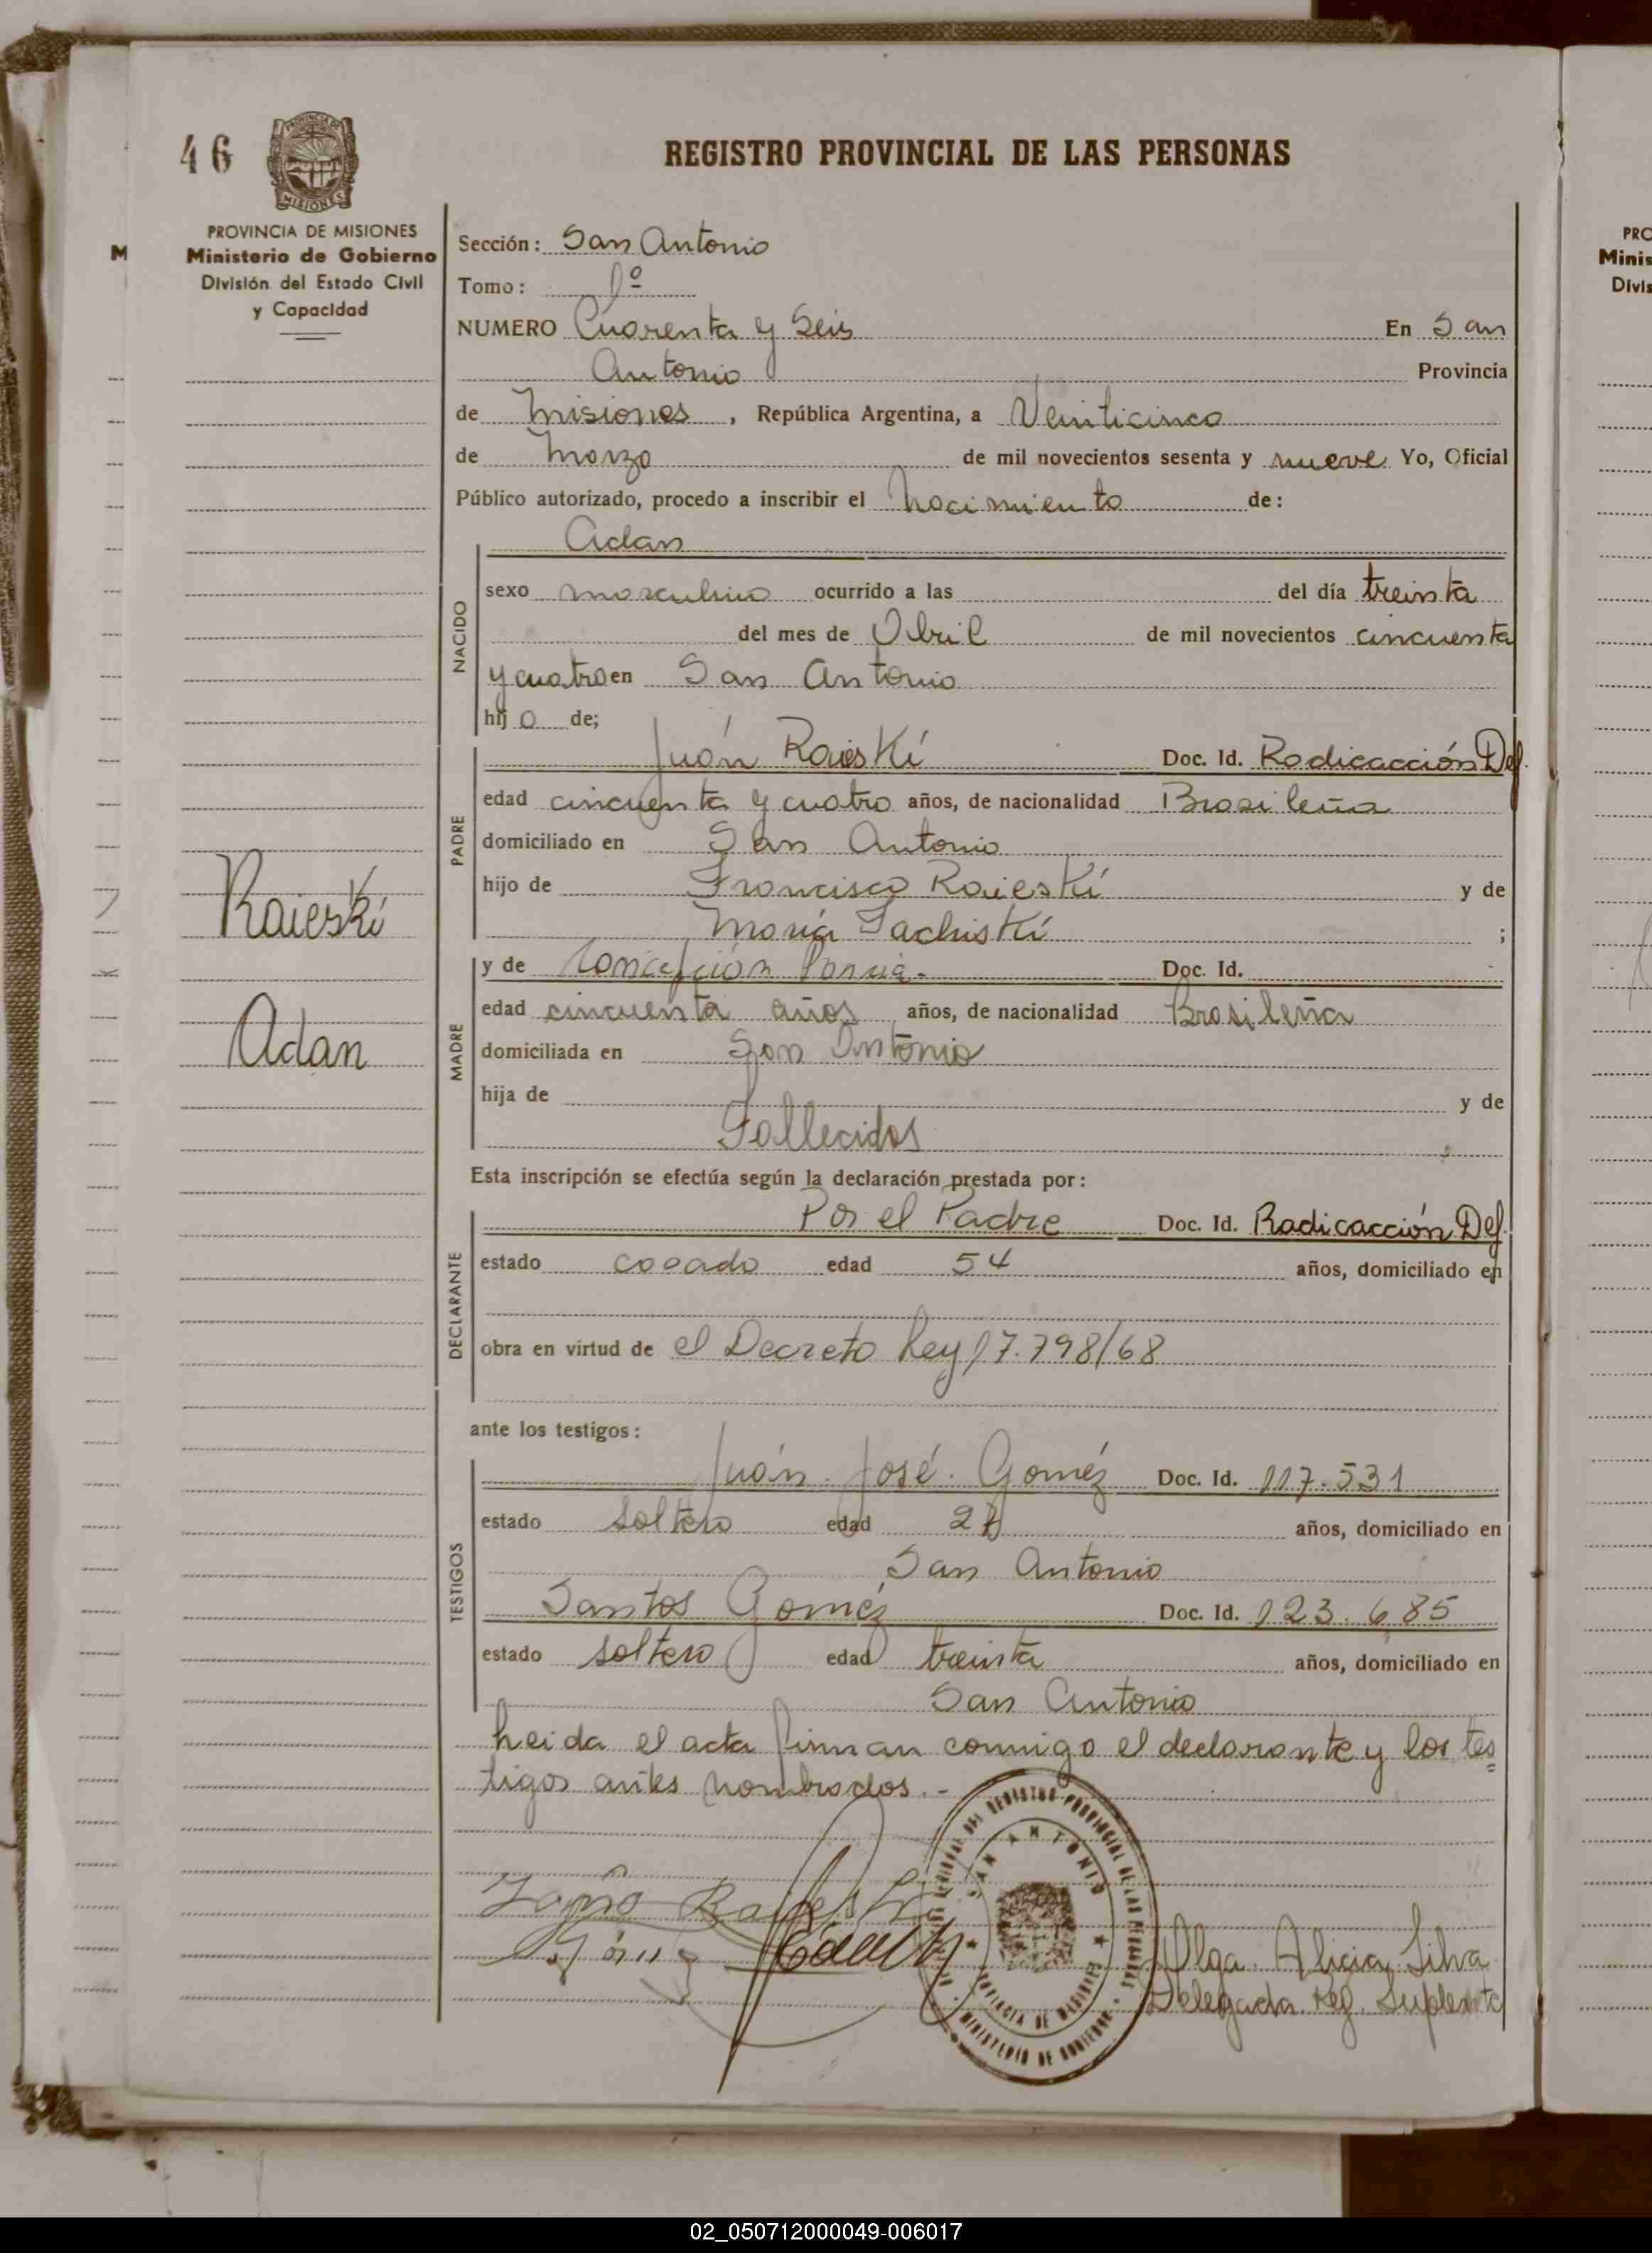 46
PROVINCIA DE MISIONES
Ministerio de Gobierno
División del Estado Civil
y Capacidad
REGISTRO PROVINCIAL DE LAS PERSONAS
Sección: San Antonio
Tomo: 1º
NUMERO Cuarenta y Seis En San
Antonio Provincia
de Misiones, República Argentina, a Veinticinco
de Marzo de mil novecientos sesenta y nueve Yo, Oficial
Público autorizado, procedo a inscribir el Nacimiento de:
Adan
NACIDO
sexo masculino ocurrido a las del día treinta
del mes de Abril de mil novecientos cincuenta
y cuatro en San Antonio
hijo de;
PADRE
Juán Raieskí Doc. Id. Radicacción Def.
edad cincuenta y cuatro años, de nacionalidad Brasileña
domiciliado en San Antonio
hijo de Francisco Raieskí y de
María Sachiskí ;
Raieskí
Adan
MADRE
y de Concepción Doc. Id.
edad cincuenta años años, de nacionalidad Brasileña
domiciliada en San Antonio
hija de y de
Fallecidos
Esta inscripción se efectúa según la declaración prestada por:
DECLARANTE
Por el Padre Doc. Id. Radicacción Def.
estado casado edad 54 años, domiciliado en
obra en virtud de el Decreto Ley 17.798/68
ante los testigos:
TESTIGOS
Juán José Goméz Doc. Id. 117.531
estado soltero edad años, domiciliado en
San Antonio
Santos Goméz Doc. Id. 123.685
estado soltero edad treinta años, domiciliado en
San Antonio
Leida el acta firman conmigo el declarante y los tes=
tigos antes nombrados.-
SAN ANTONIO
PROVINCIA DE MISIONES
MINISTERIO DE GOBIERNO
Olga Alicia Silva
Delegada Reg. Suplente
PRO
Minis
Divis
M
02_050712000049-006017